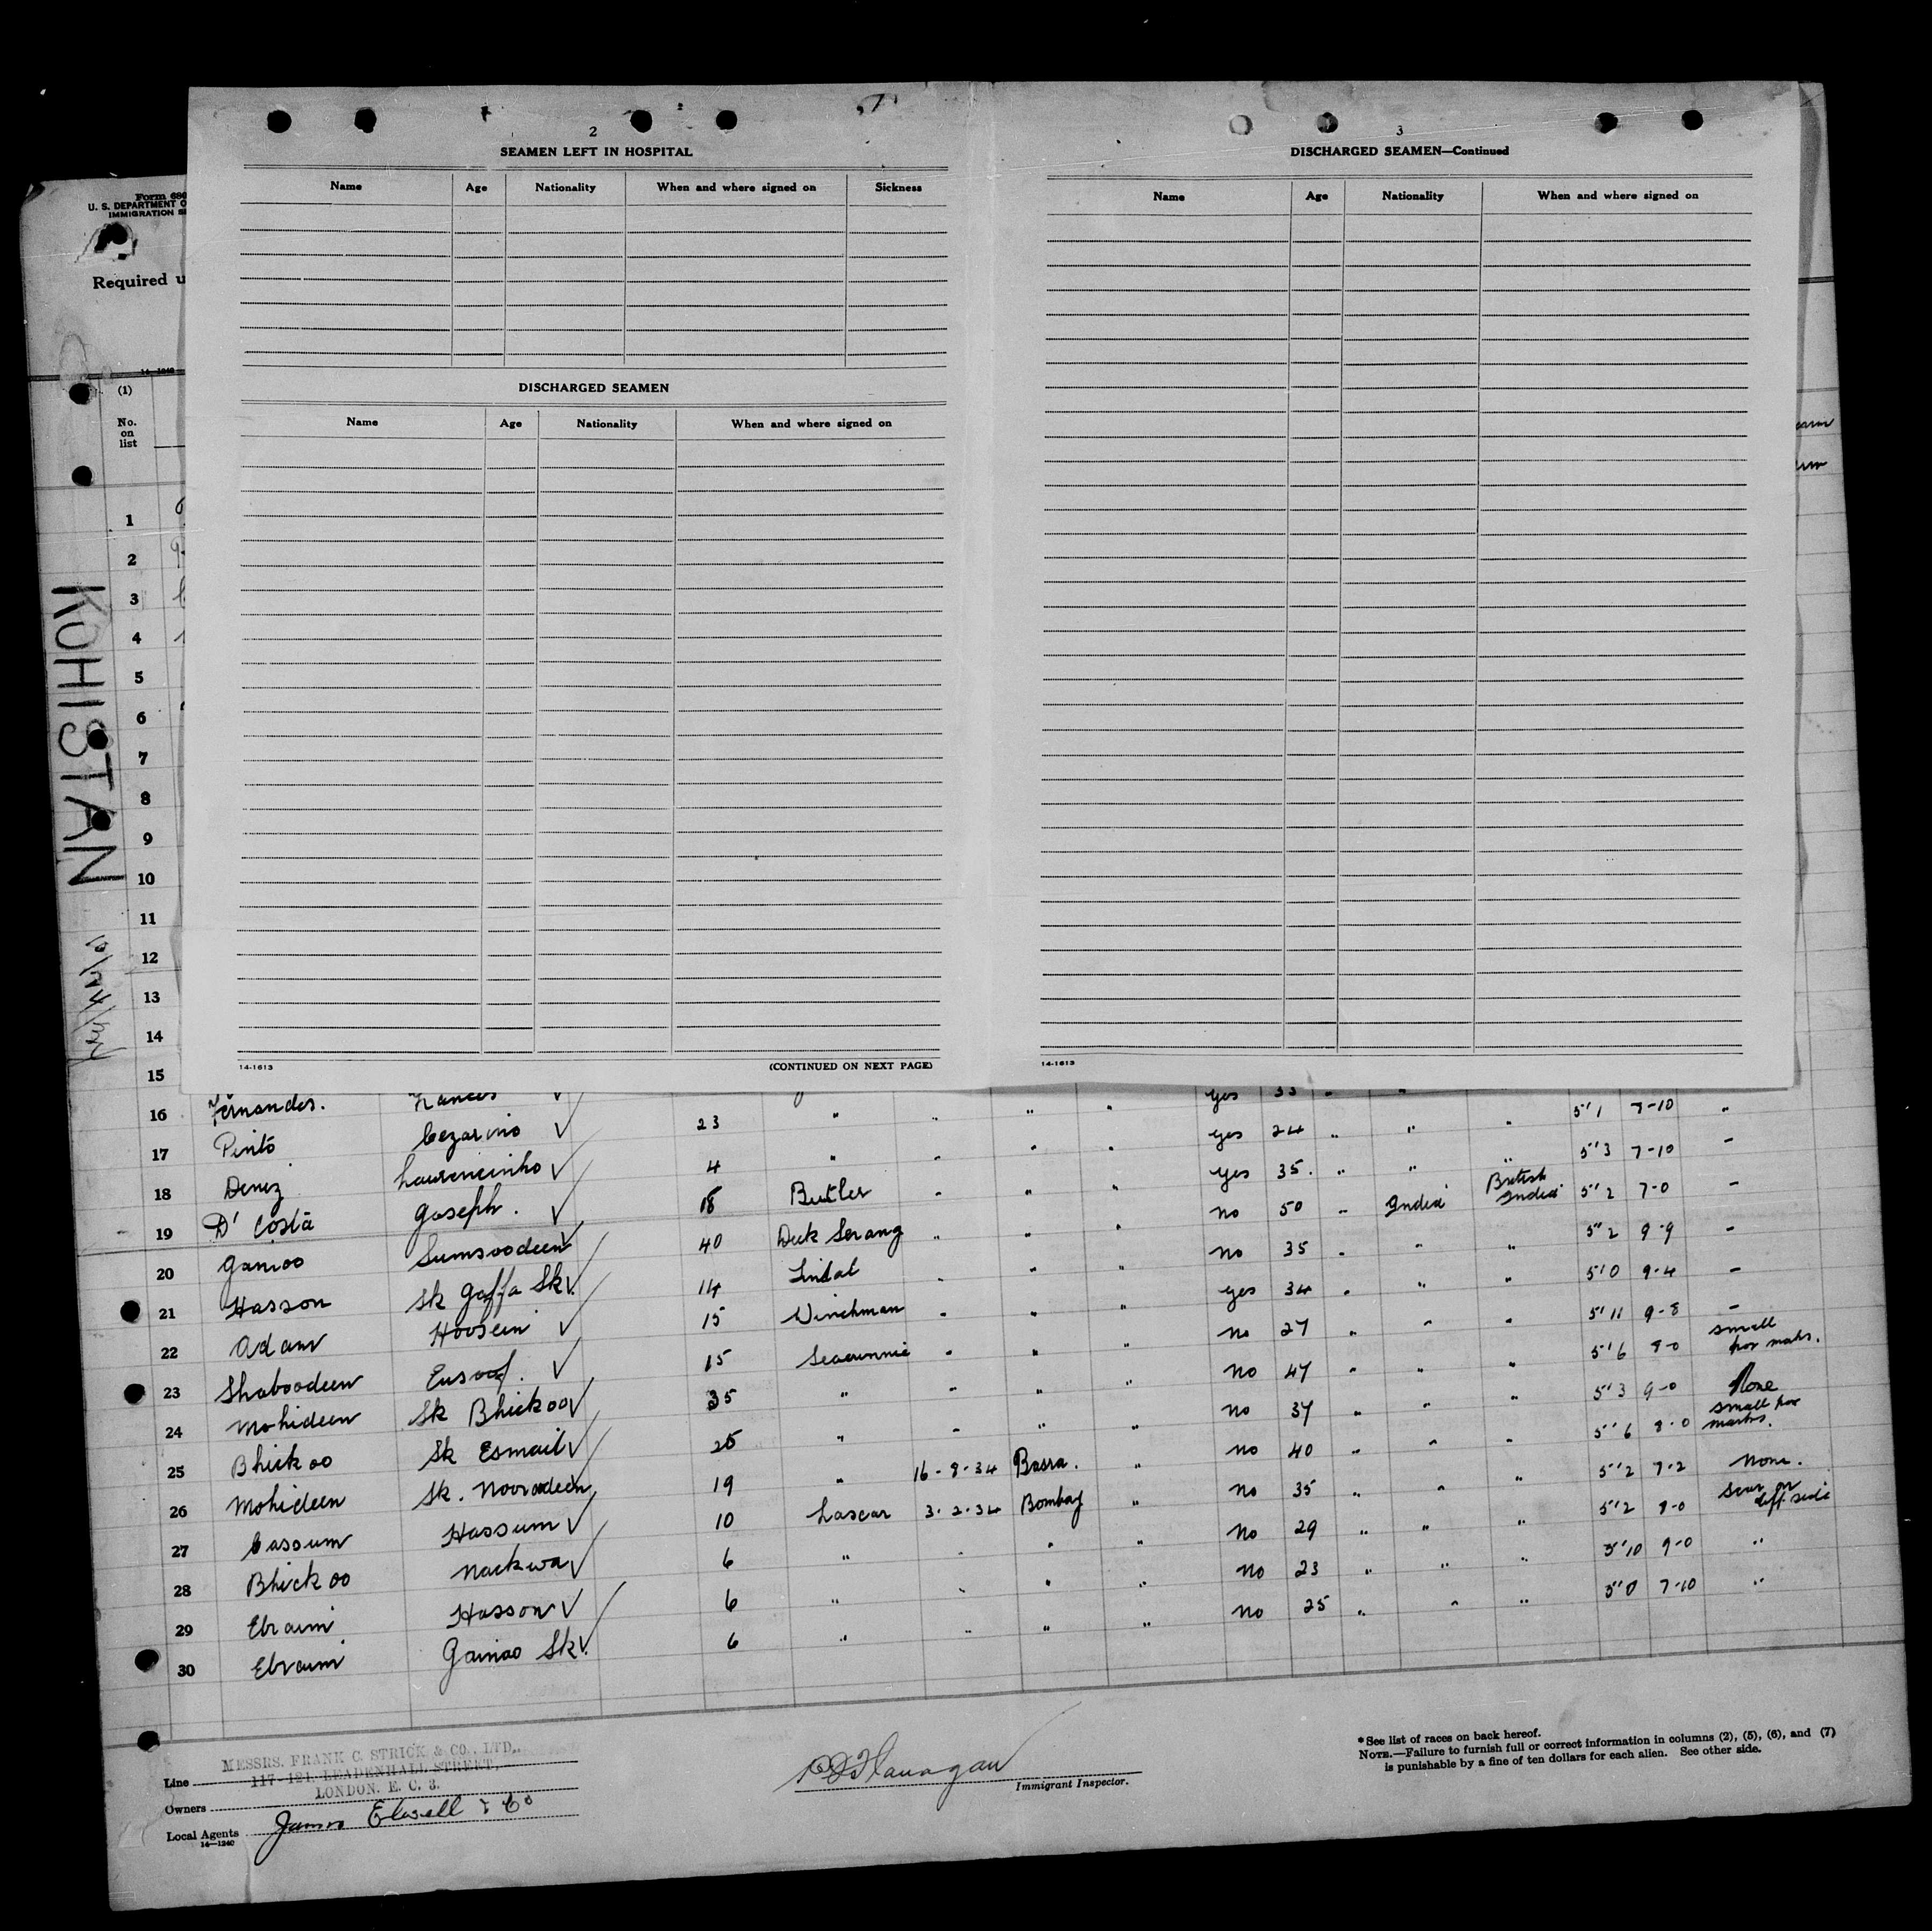 2
SEAMEN LEFT IN HOSPITAL
Name Age Nationality When and where signed on Sickness
DISCHARGED SEAMEN
Name Age Nationality When and where signed on
14-1613 (CONTINUED ON NEXT PAGE)
3
DISCHARGED SEAMEN—Continued
Name Age Nationality When and where signed on
14-1613
Form 680
U. S. DEPARTMENT O
IMMIGRATION SE
Required u
14—1240
(1)
No.
on
list
KOHISTAN
1
2
3
4
5
6
7
8
9
10
11
12
13
14
15
16 Fernandes. Frances yes 33
17 Pinto Cezarino 23 " " " " yes 24 " " " 5'1 7-10 "
18 Deniz Laurencinho 4 " " " " yes 35. " " " 5'3 7-10 -
19 D' Costa Joseph. 18 Butler " " " no 50 " India British India 5'2 7-0 -
20 Ganioo Sumsoodeen 40 Deck Serang " " " no 35 " " " 5'2 9-9 -
21 Hasson Sk Gaffa Sk. 14 Tindal " " " yes 34 " " " 5'0 9-4 -
22 Adam Hoosein 15 Winchman " " " no 27 " " " 5'11 9-8 -
23 Shaboodeen Eusoof. 15 Seacunnie " " " no 47 " " " 5'6 8-0 small pox marks.
24 Mohideen Sk Bhickoo 35 " " " " no 37 " " " 5'3 9-0 None
25 Bhickoo Sk Esmail 25 " " " " no 40 " " " 5'6 8-0 small pox marks.
26 Mohideen Sk. Nooradeen 19 " 16-8-34 Basra. " no 35 " " " 5'2 7-2 None.
27 Cassum Hassum 10 Lascar 3-2-34 Bombay " no 29 " " " 5'2 8-0 Scar on left side
28 Bhickoo Nackwa 6 " " " " no 23 " " " 5'10 9-0 "
29 Ebraim Hasson 6 " " " " no 25 " " " 5'0 7-10 "
30 Ebraim Gainoo Sk. 6 " " " "
Line MESSRS. FRANK C. STRICK & CO., LTD.,
117-121 LEADENHALL STREET,
Owners LONDON. E. C. 3.
Local Agents James Elwell & Co
14—1240
Flanagan
Immigrant Inspector.
*See list of races on back hereof.
NOTE.—Failure to furnish full or correct information in columns (2), (5), (6), and (7)
is punishable by a fine of ten dollars for each alien. See other side.